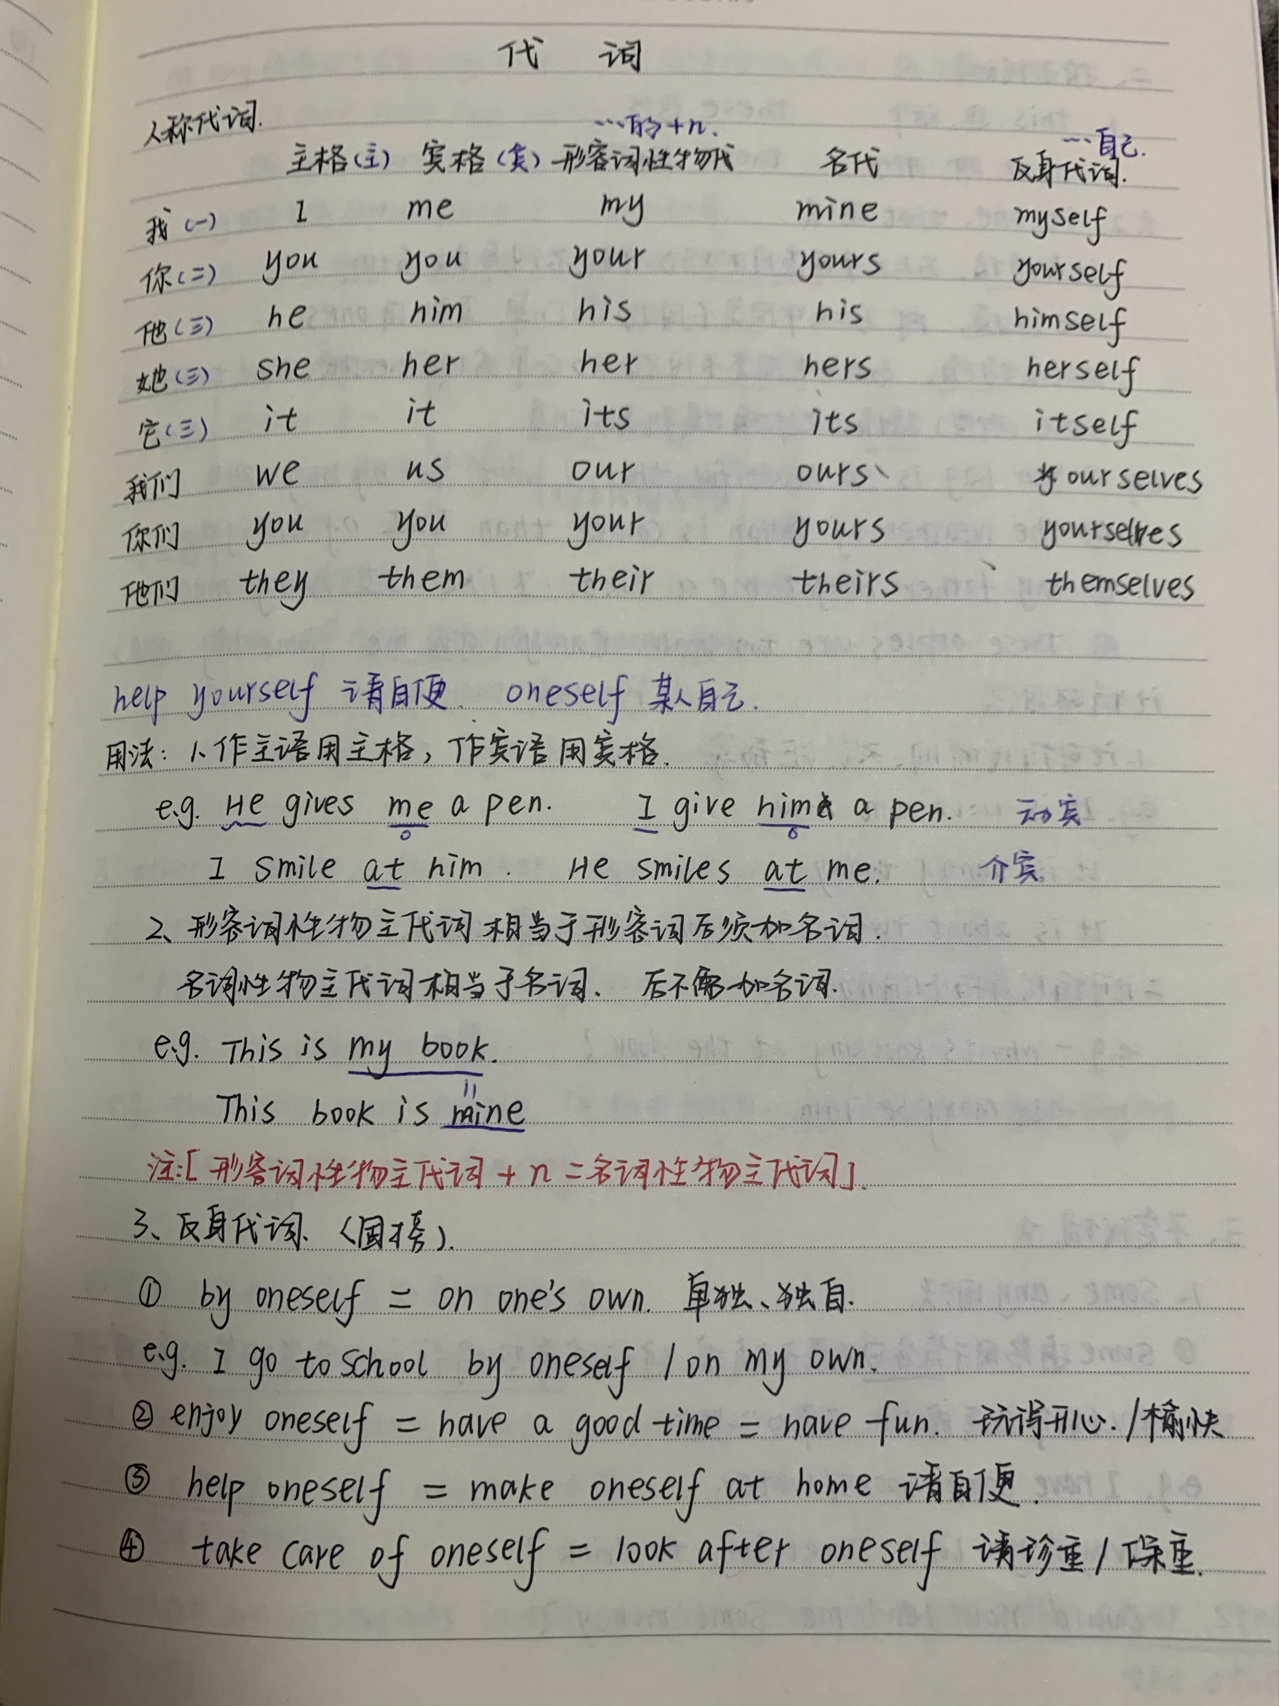 代 词
人称代词.
…的+n. …自己.
主格(主) 宾格(宾) 形容词性物代 名代 反身代词.
我(一) I me my mine myself
你(二) you you your yours yourself
他(三) he him his his himself
她(三) she her her hers herself
它(三) it it its its itself
我们 we us our ours ourselves
你们 you you your yours yourselves
他们 they them their theirs themselves
help yourself 请自便. oneself 某人自己.
用法: 1、作主语用主格, 作宾语用宾格.
e.g. He gives me a pen. I give him a pen. 动宾
I smile at him. He smiles at me. 介宾
2、形容词性物主代词相当于形容词后须加名词.
名词性物主代词相当于名词、后不需加名词.
e.g. This is my book.
This book is mine
注:[形容词性物主代词+n=名词性物主代词].
3、反身代词.(固搭).
① by oneself = on one's own. 单独、独自.
e.g. I go to school by oneself / on my own.
② enjoy oneself = have a good time = have fun. 玩得开心./愉快
③ help oneself = make oneself at home 请自便.
④ take care of oneself = look after oneself 请珍重/保重.